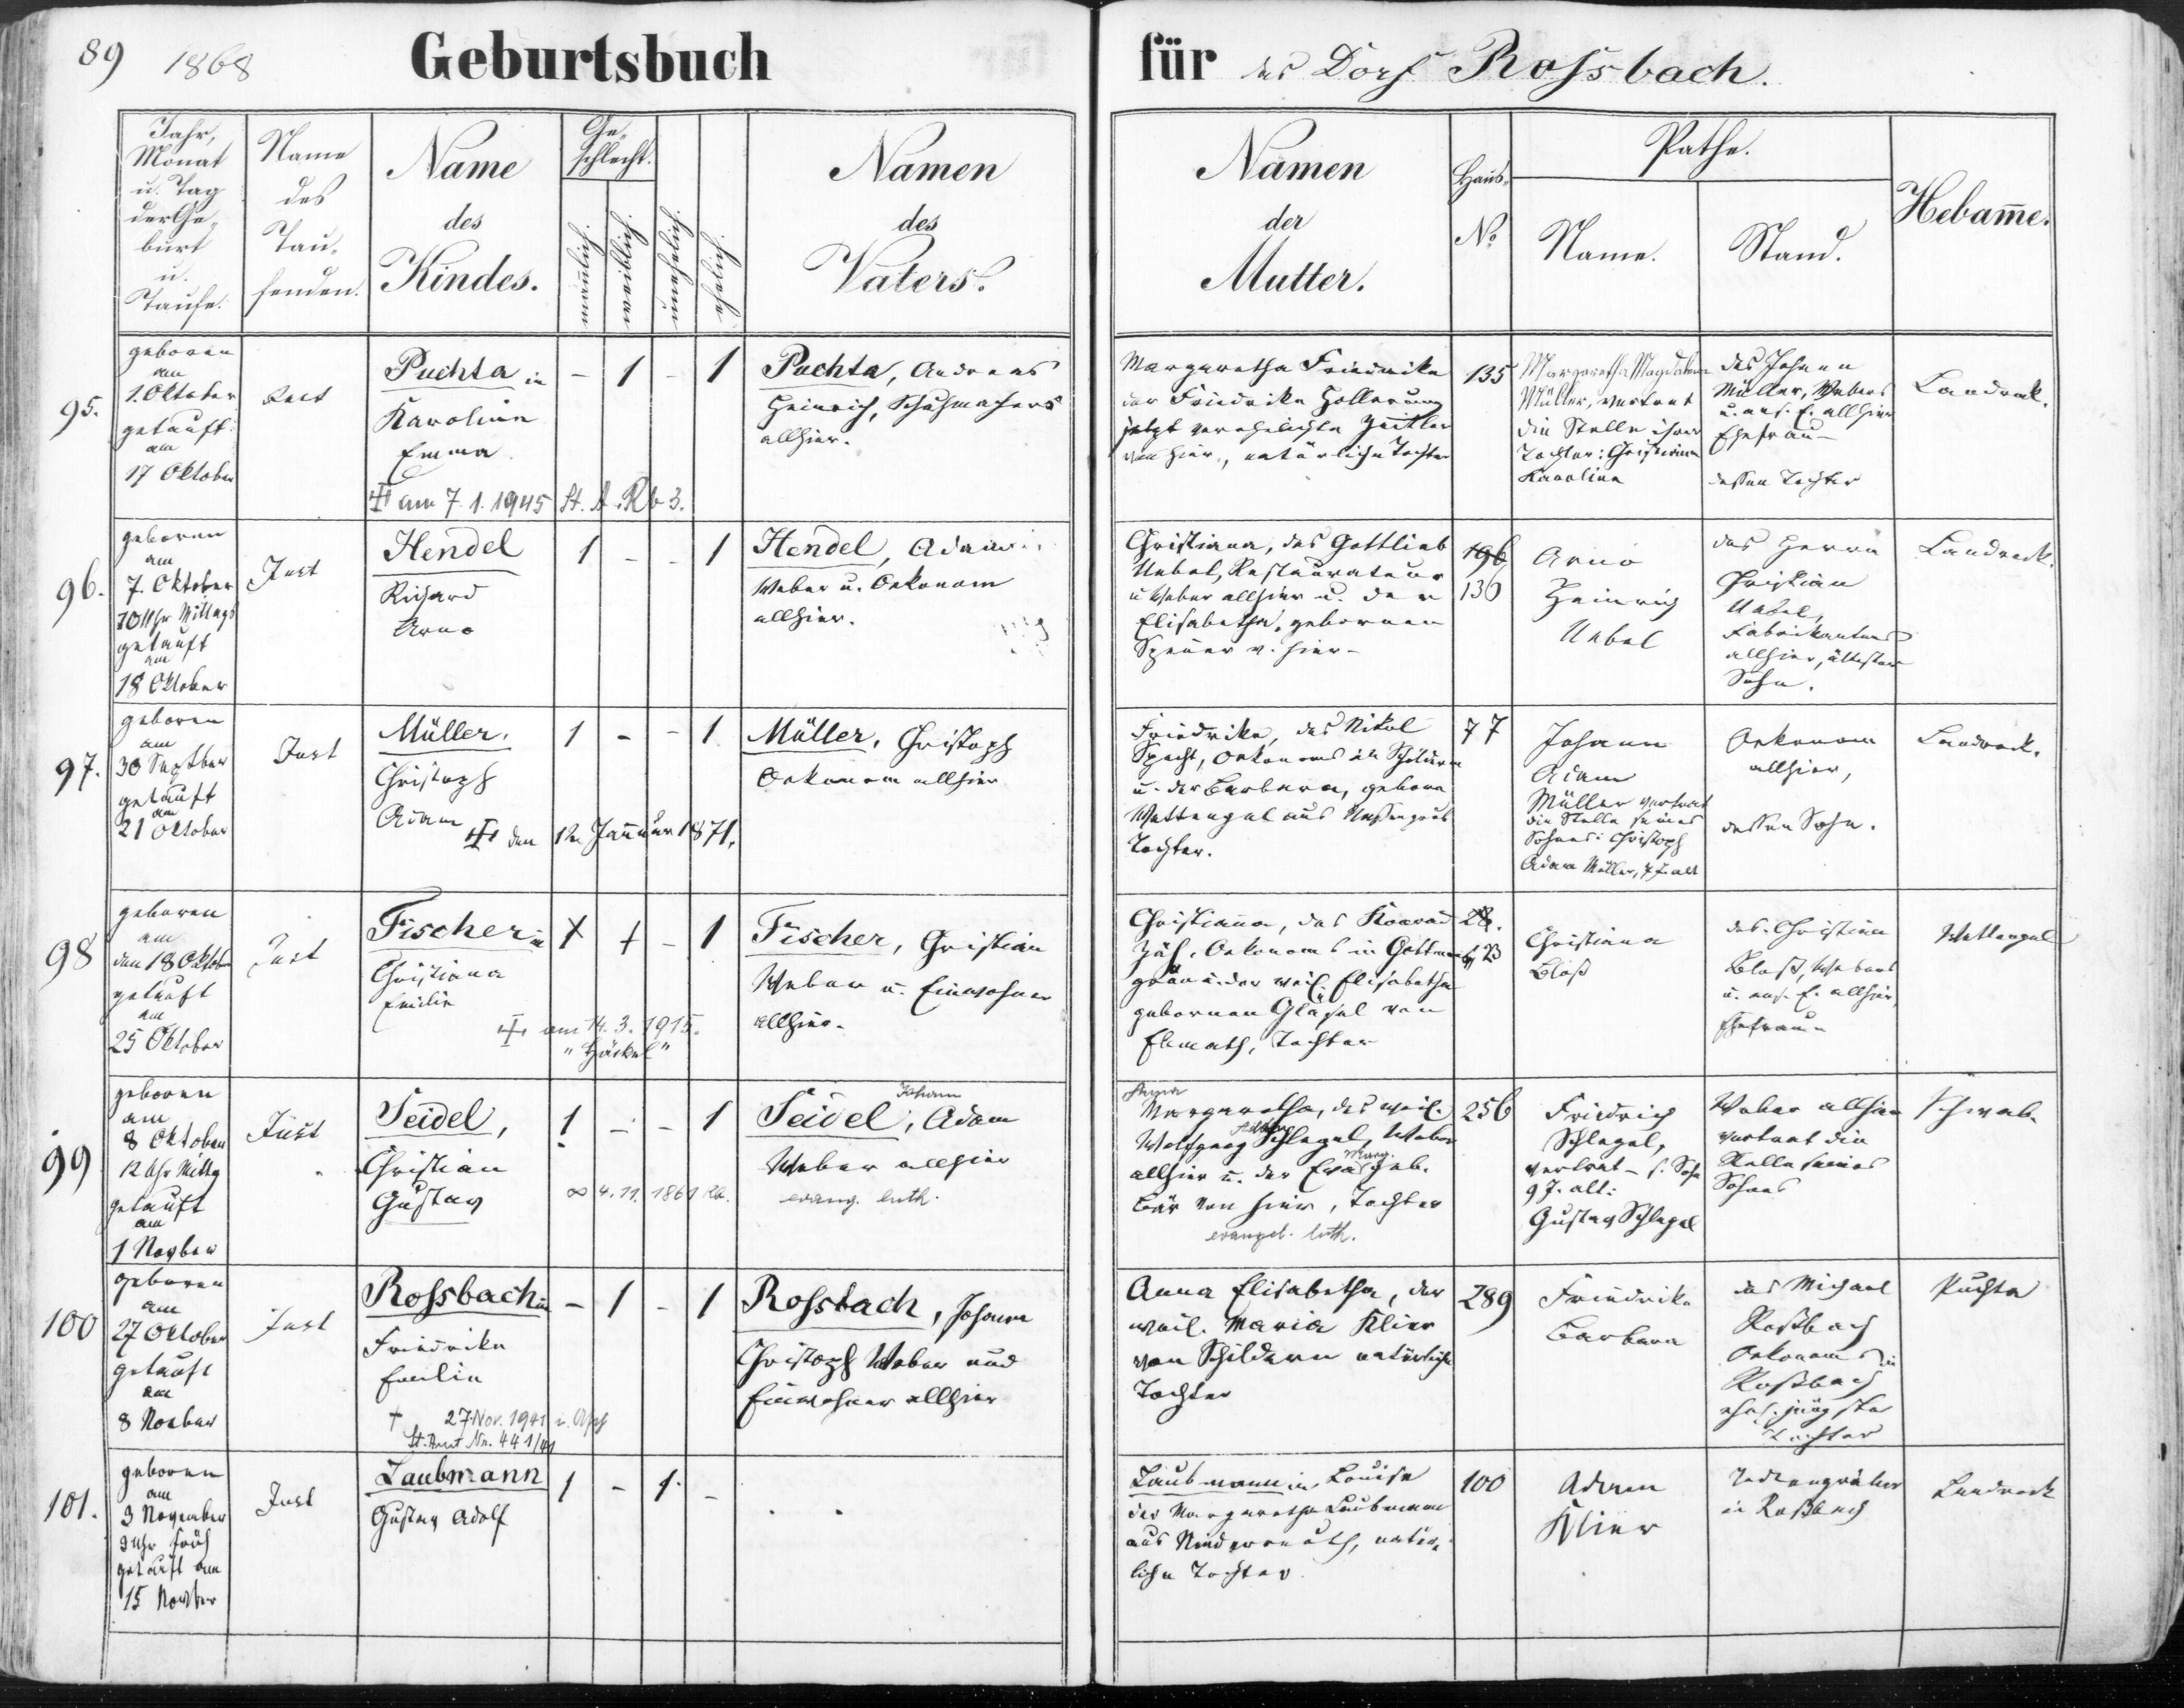 89 1868 Geburtsbuch für das Dorf Roſsbach.
Jahr,
Monat
u. Tag
der Ge-
burt
u.
Taufe.
Name
des
Tau-
fenden.
Name
des
Kindes.
Ge-
schlecht.
männlich.
weiblich.
unehelich.
ehelich.
Namen
des
Vaters.
Namen
der
Mutter.
Haus-
No
Pathe.
Name.
Stand.
Hebam̅e.
95.
geboren
am
1. Oktober
getauft
am
17 Oktober
Just
Puchta in
Karolina
Emma
✝ am 7. 1. 1945 St. A. Rb 3.
- 1 - 1
Puchta, Andreas
Heinrich, Schuhmachers
allhier.
Margaretha Friedrika
der Friedrika Hollerung
jetzt verehelichte Zeitler
von hier, natürliche Tochter
135
Margaretha Magdalena
Müller, vertrat
die Stelle ihrer
Tochter: Christiana
Karolina
des Johann
Müller, Webers
u. ans. E. allhier
Ehefrau-
dessen Tochter
Landrock.
96.
geboren
am
7. Oktober
10 Uhr Mittags
getauft
am
18 Oktober
Just
Hendel
Richard
Arno
1 - - 1
Hendel, Adam
Weber u. Oekonom
allhier.
Christiana, des Gottlieb
Uebel, Restaurateur
u Weber allhier u. der
Elisabetha, gebornen
v. hier-
196
136
Arno
Heinrich
Uebel
des Herrn
Christian
Uebel,
Fabrikanten
allhier, ältester
Sohn.
Landrock.
97.
geboren
am
30 Septber
getauft
am
21 Oktober
Just
Müller,
Christoph
Adam
✝ den 12 Jannuar 1871.
1 - - 1
Müller, Christoph
Oekonom allhier
Friedrika, des Nikol
Specht, Oekonoms in Schildern
u. der Barbara, geborne
Wettengel aus
Tochter.
77
Johann
Adam
Müller vertrat
die Stelle seines
Sohnes: Christoph
Adam Müller, 7 J. alt
Oekonom
allhier,
dessen Sohn.
Landrock.
98
geboren
am
den 18 Oktober
getauft
am
25 Oktober
Just
Fischer in
Christiana
Emilie
✝ am 14. 3. 1915.
"Häckel"
1 1 - 1
Fischer, Christian
Weber u. Einwohner
allhier.
Christiana, des Konrad
Zäh, Oekonoms in Gottmanns-
grün u. der weil. Elisabetha
gebornen Gläsel von
Tochter
28.
23
Christiana
Bloß
des Christian
Bloß, Webers
u. ans. E. allhier,
Ehefrau-
Wettengel
99
geboren
am
8 Oktober
12 Uhr Mittg
getauft
am
1 Novber
Just
Seidel,
Christian
Gustav
∞ 4. 11. 1861 Rb.
1 - - 1
Johann
Seidel, Adam
Weber allhier
evang. luth.
Anna
Margaretha, des weil.
Wolfgang Schlegel, Weber
allhier u. der Eva Marg. geb.
Bär von hier, Tochter
evangel. luth.
256
Friedrich
Schlegel,
vertrat - s. Sohn
9 J. alt:
Gustav Schlegel
Weber allhier
vertrat die
Stelle seines
Sohnes
Schwab.
100
geboren
am
27 Oktober
getauft
am
8 Novber
Just
Roſsbach in
Friedrika
Emilie
✝ 27. Nov. 1941 i. Asch
St. Amt Nr. 441/41
- 1 - 1
Roſsbach, Johann
Christoph Weber und
Einwohner allhier
Anna Elisabetha, der
weil. Maria Klier
von Schildern natürliche
Tochter
289
Friedrika
Barbara
des Michael
Roßbach
Oekonoms in
Roßbach
ehel. jüngste
Tochter
Puchta
101.
geboren
am
3 November
3 Uhr früh
getauft am
15 Novber
Just
Laubmann
Gustav Adolf
1 - 1. -
Laubmann in, Louise
der Margaretha Laubmann
aus Niederreuth, natür-
liche Tochter.
100
Adam
Klier
Todtengräber
in Roßbach
Landrock